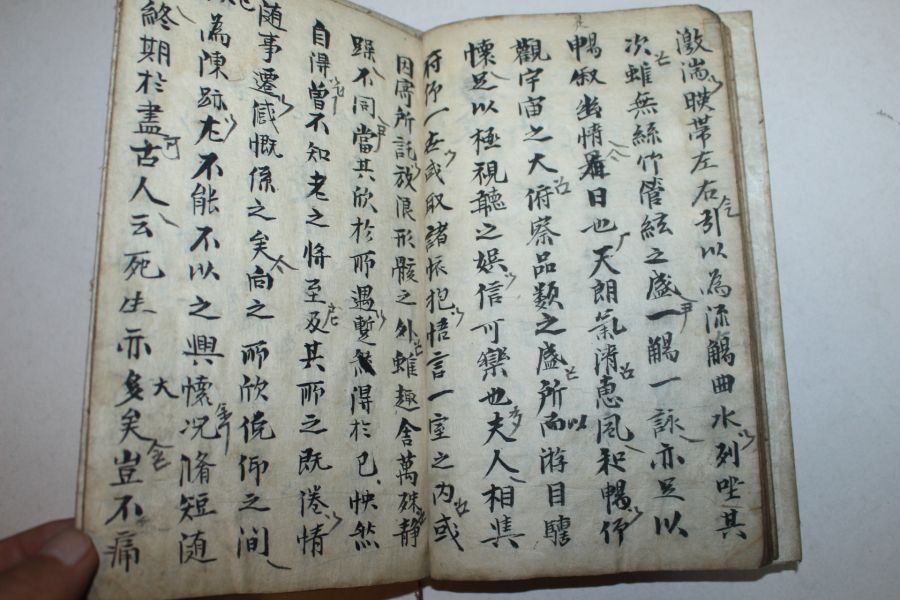 激湍暎帶左右引以為流觴曲水列坐其
次雖無絲竹管絃之盛一觴一詠亦足以
暢叙幽情是日也天朗氣淸惠風和暢仰
觀宇宙之大俯察品類之盛所以游目騁
懷足以極視聽之娛信可樂也夫人相與
府仰一世或取諸懐抱悟言一室之内或
因寄所託放浪形骸之外雖趣舍萬殊静
躁不同當其欣於所遇暫得於已怏然
自得曾不知老之將至及其所之既倦情
随事遷感慨係之矣向之所欣俛仰之間
為陳跡尤不能不以之興懷况脩短随
終期於盡古人云死生亦大矣豈不痛